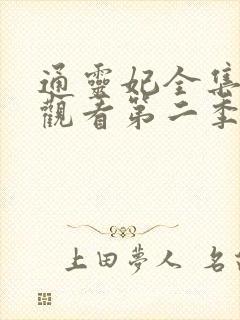 通靈妃全集
觀看第二季
上田夢人 名